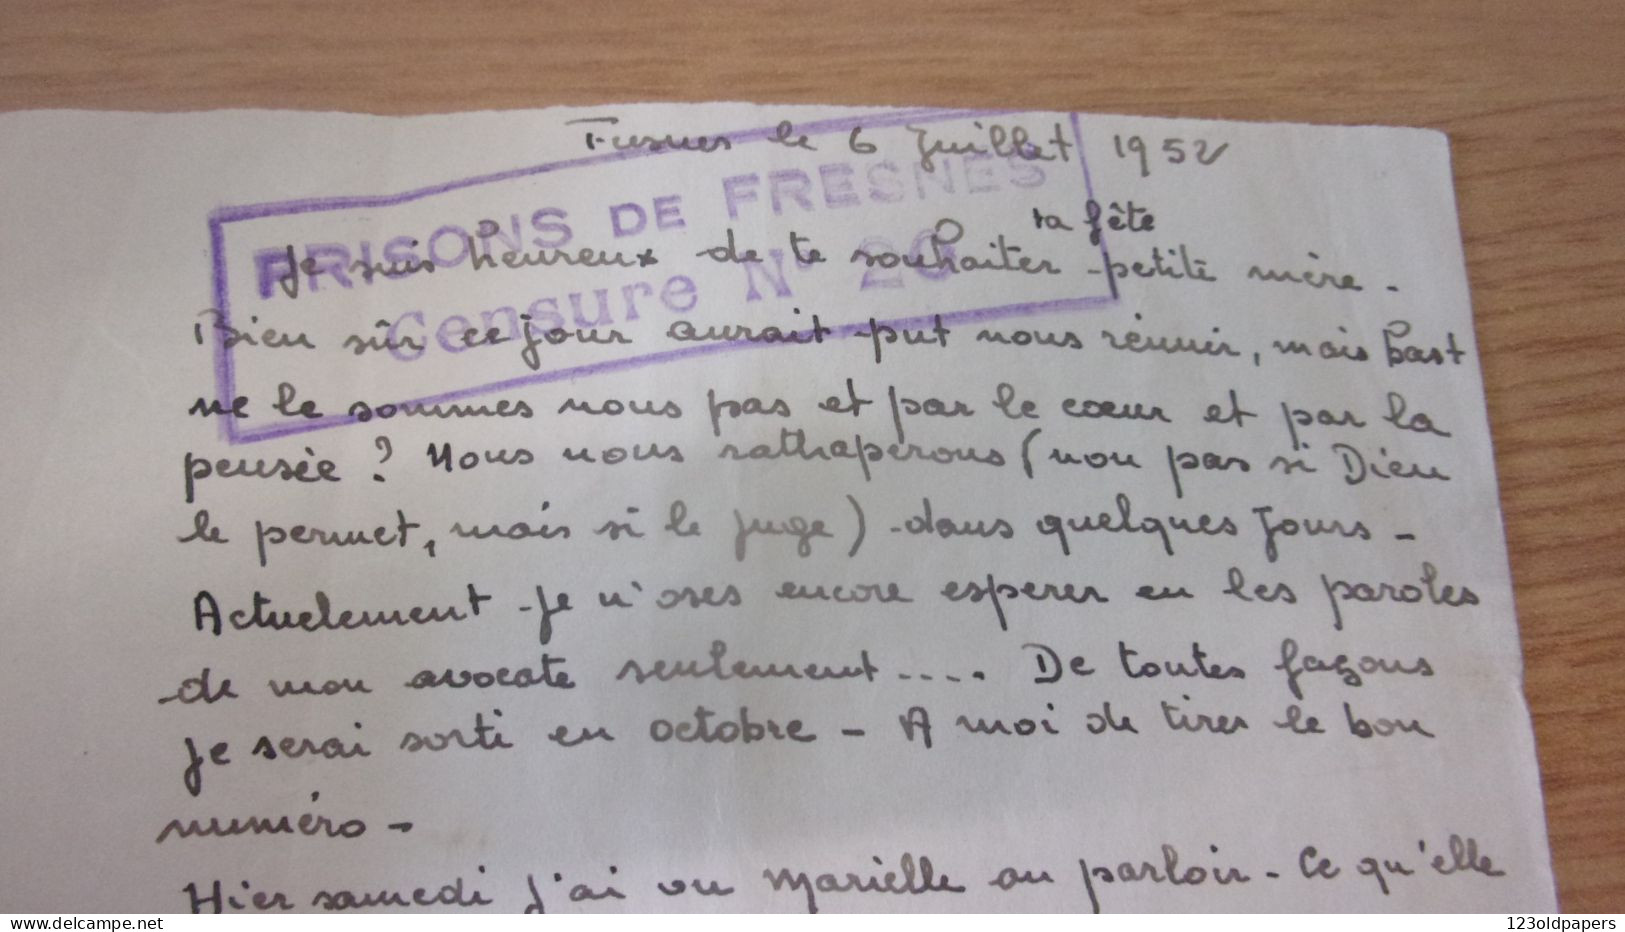 Fresnes le 6 Juillet 1952
PRISONS DE FRESNES
Censure N° 26
ta fête
Je suis heureux de te souhaiter petite mère.
Bien sûr ce jour aurait put nous réunir, mais bast
ne le sommes nous pas et par le cœur et par la
pensée ? Nous nous ratraperons (non pas si Dieu
le permet, mais si le juge) dans quelques jours -
Actuelement je n'oses encore esperer en les paroles
de mon avocate seulement .... De toutes façons
je serai sorti en octobre - A moi de tirer le bon
numéro -
Hier samedi j'ai vu Marielle au parloir - Ce qu'elle
www.delcampe.net
123oldpapers